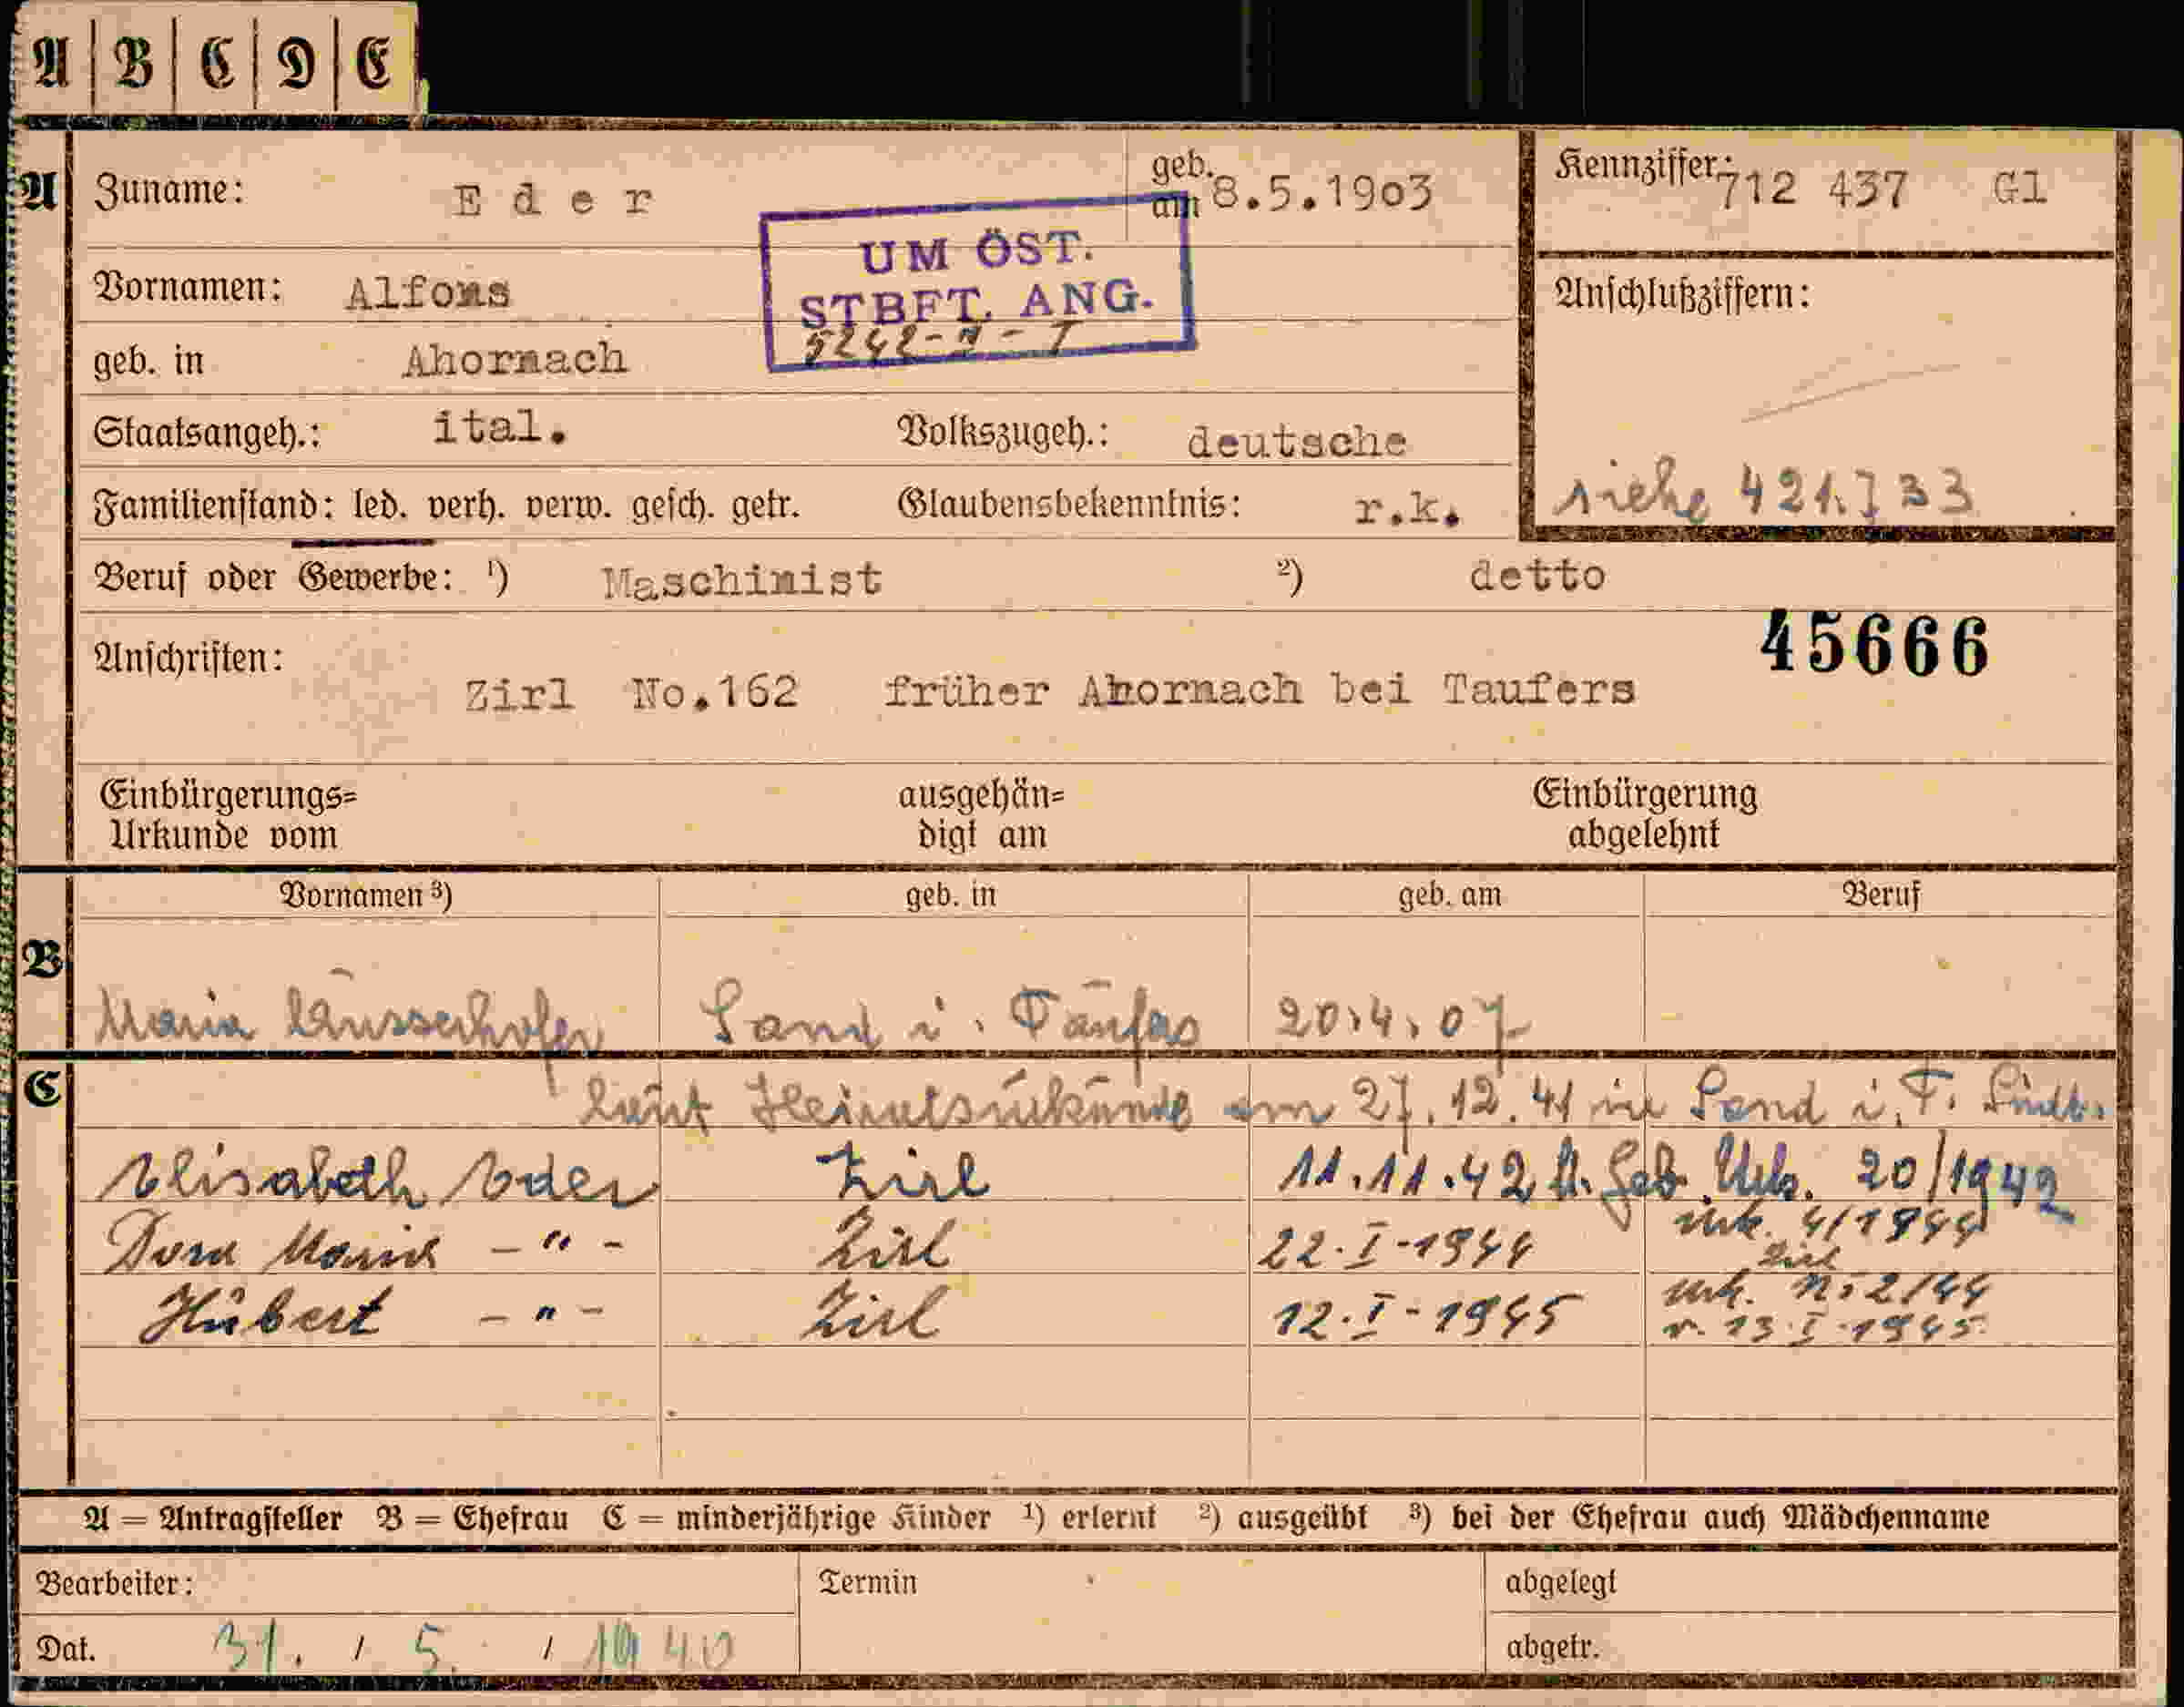 A | B | C | D | E
A
Zuname: Eder geb. am 8.5.1903 Kennziffer: 712 437 Gl
UM ÖST.
STBFT. ANG.
Vornamen: Alfons Anschlußziffern:
geb. in Ahornach
Staatsangeh.: ital. Volkszugeh.: deutsche
Familienstand: led. verh. verw. gesch. getr. Glaubensbekenntnis: r.k. siehe 421.733
Beruf oder Gewerbe: ¹) Maschinist ²) detto
45666
Anschriften: Zirl No.162 früher Ahornach bei Taufers
Einbürgerungs= ausgehän= Einbürgerung
Urkunde vom digt am abgelehnt
Vornamen ³) geb. in geb. am Beruf
B
Maria Ausserhofer Sand i. Taufers 20.4.07
C
laut Heiratsurkunde am 27.12.41 in Sand i. T. Südt.
Elisabeth Eder Zirl 11.11.42 Geb. Urk. 20/1942
Dora Maria - " - Zirl 22.I-1944 Urk. 4/1944 Zirl
Hubert - " - Zirl 12.I-1945 Urk. N: 2/44 v. 13.I.1945.
A = Antragsteller B = Ehefrau C = minderjährige Kinder ¹) erlernt ²) ausgeübt ³) bei der Ehefrau auch Mädchenname
Bearbeiter: Termin abgelegt
Dat. 31. / 5. / 1940 abgetr.